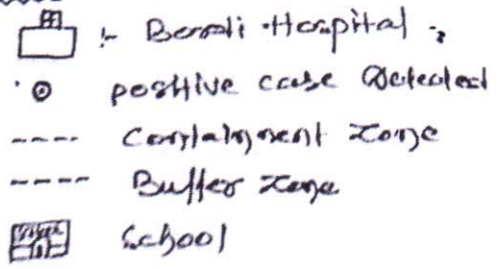 :- Borali Hospital :
positive case Detected
Containment Zone
Buffer Zone
School